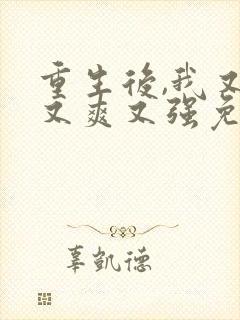 重生後,我又
又爽又强免
辜凱德